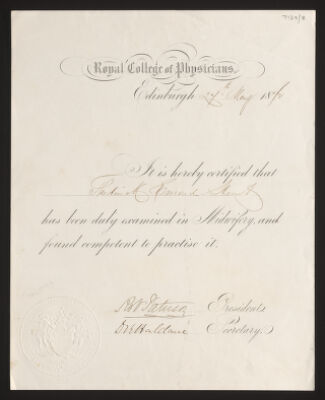 Royal College of Physicians.
Edinburgh 27th May 187
It is hereby certified that
has been duly examined in Midwifery, and
found competent to practise it.
President
D R Haldane Secretary.